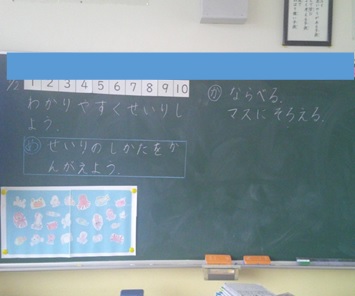 1 2 3 4 5 6 7 8 9 10
わかりやすくせいりし
よう.
め せいりのしかたをか
んがえよう.
か ならべる.
マスにそろえる.